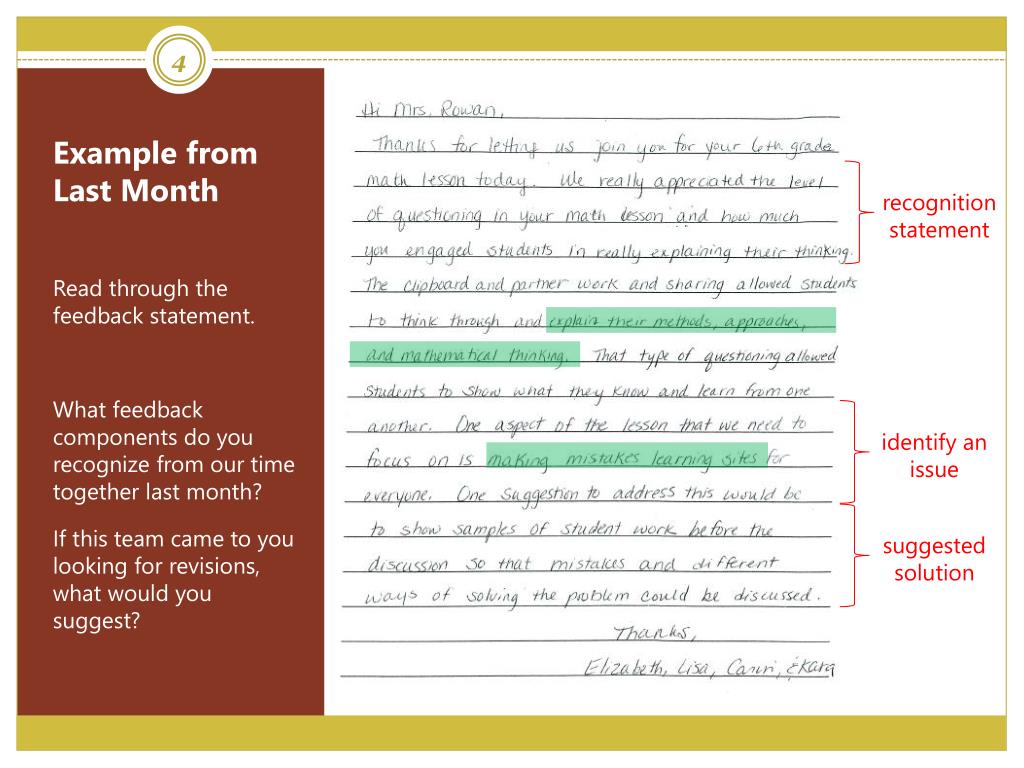 4
Example from
Last Month
Read through the
feedback statement.
What feedback
components do you
recognize from our time
together last month?
If this team came to you
looking for revisions,
what would you
suggest?
Hi Mrs. Rowan,
Thanks for letting us join you for your 6th grade
math lesson today. We really appreciated the level
of questioning in your math lesson and how much
you engaged students in really explaining their thinking.
The clipboard and partner work and sharing allowed students
to think through and explain their methods, approaches,
and mathematical thinking. That type of questioning allowed
students to show what they know and learn from one
another. One aspect of the lesson that we need to
focus on is making mistakes learning sites for
everyone. One suggestion to address this would be
to show samples of student work before the
discussion so that mistakes and different
ways of solving the problem could be discussed.
Thanks,
Elizabeth, Lisa, & Kara
recognition
statement
identify an
issue
suggested
solution